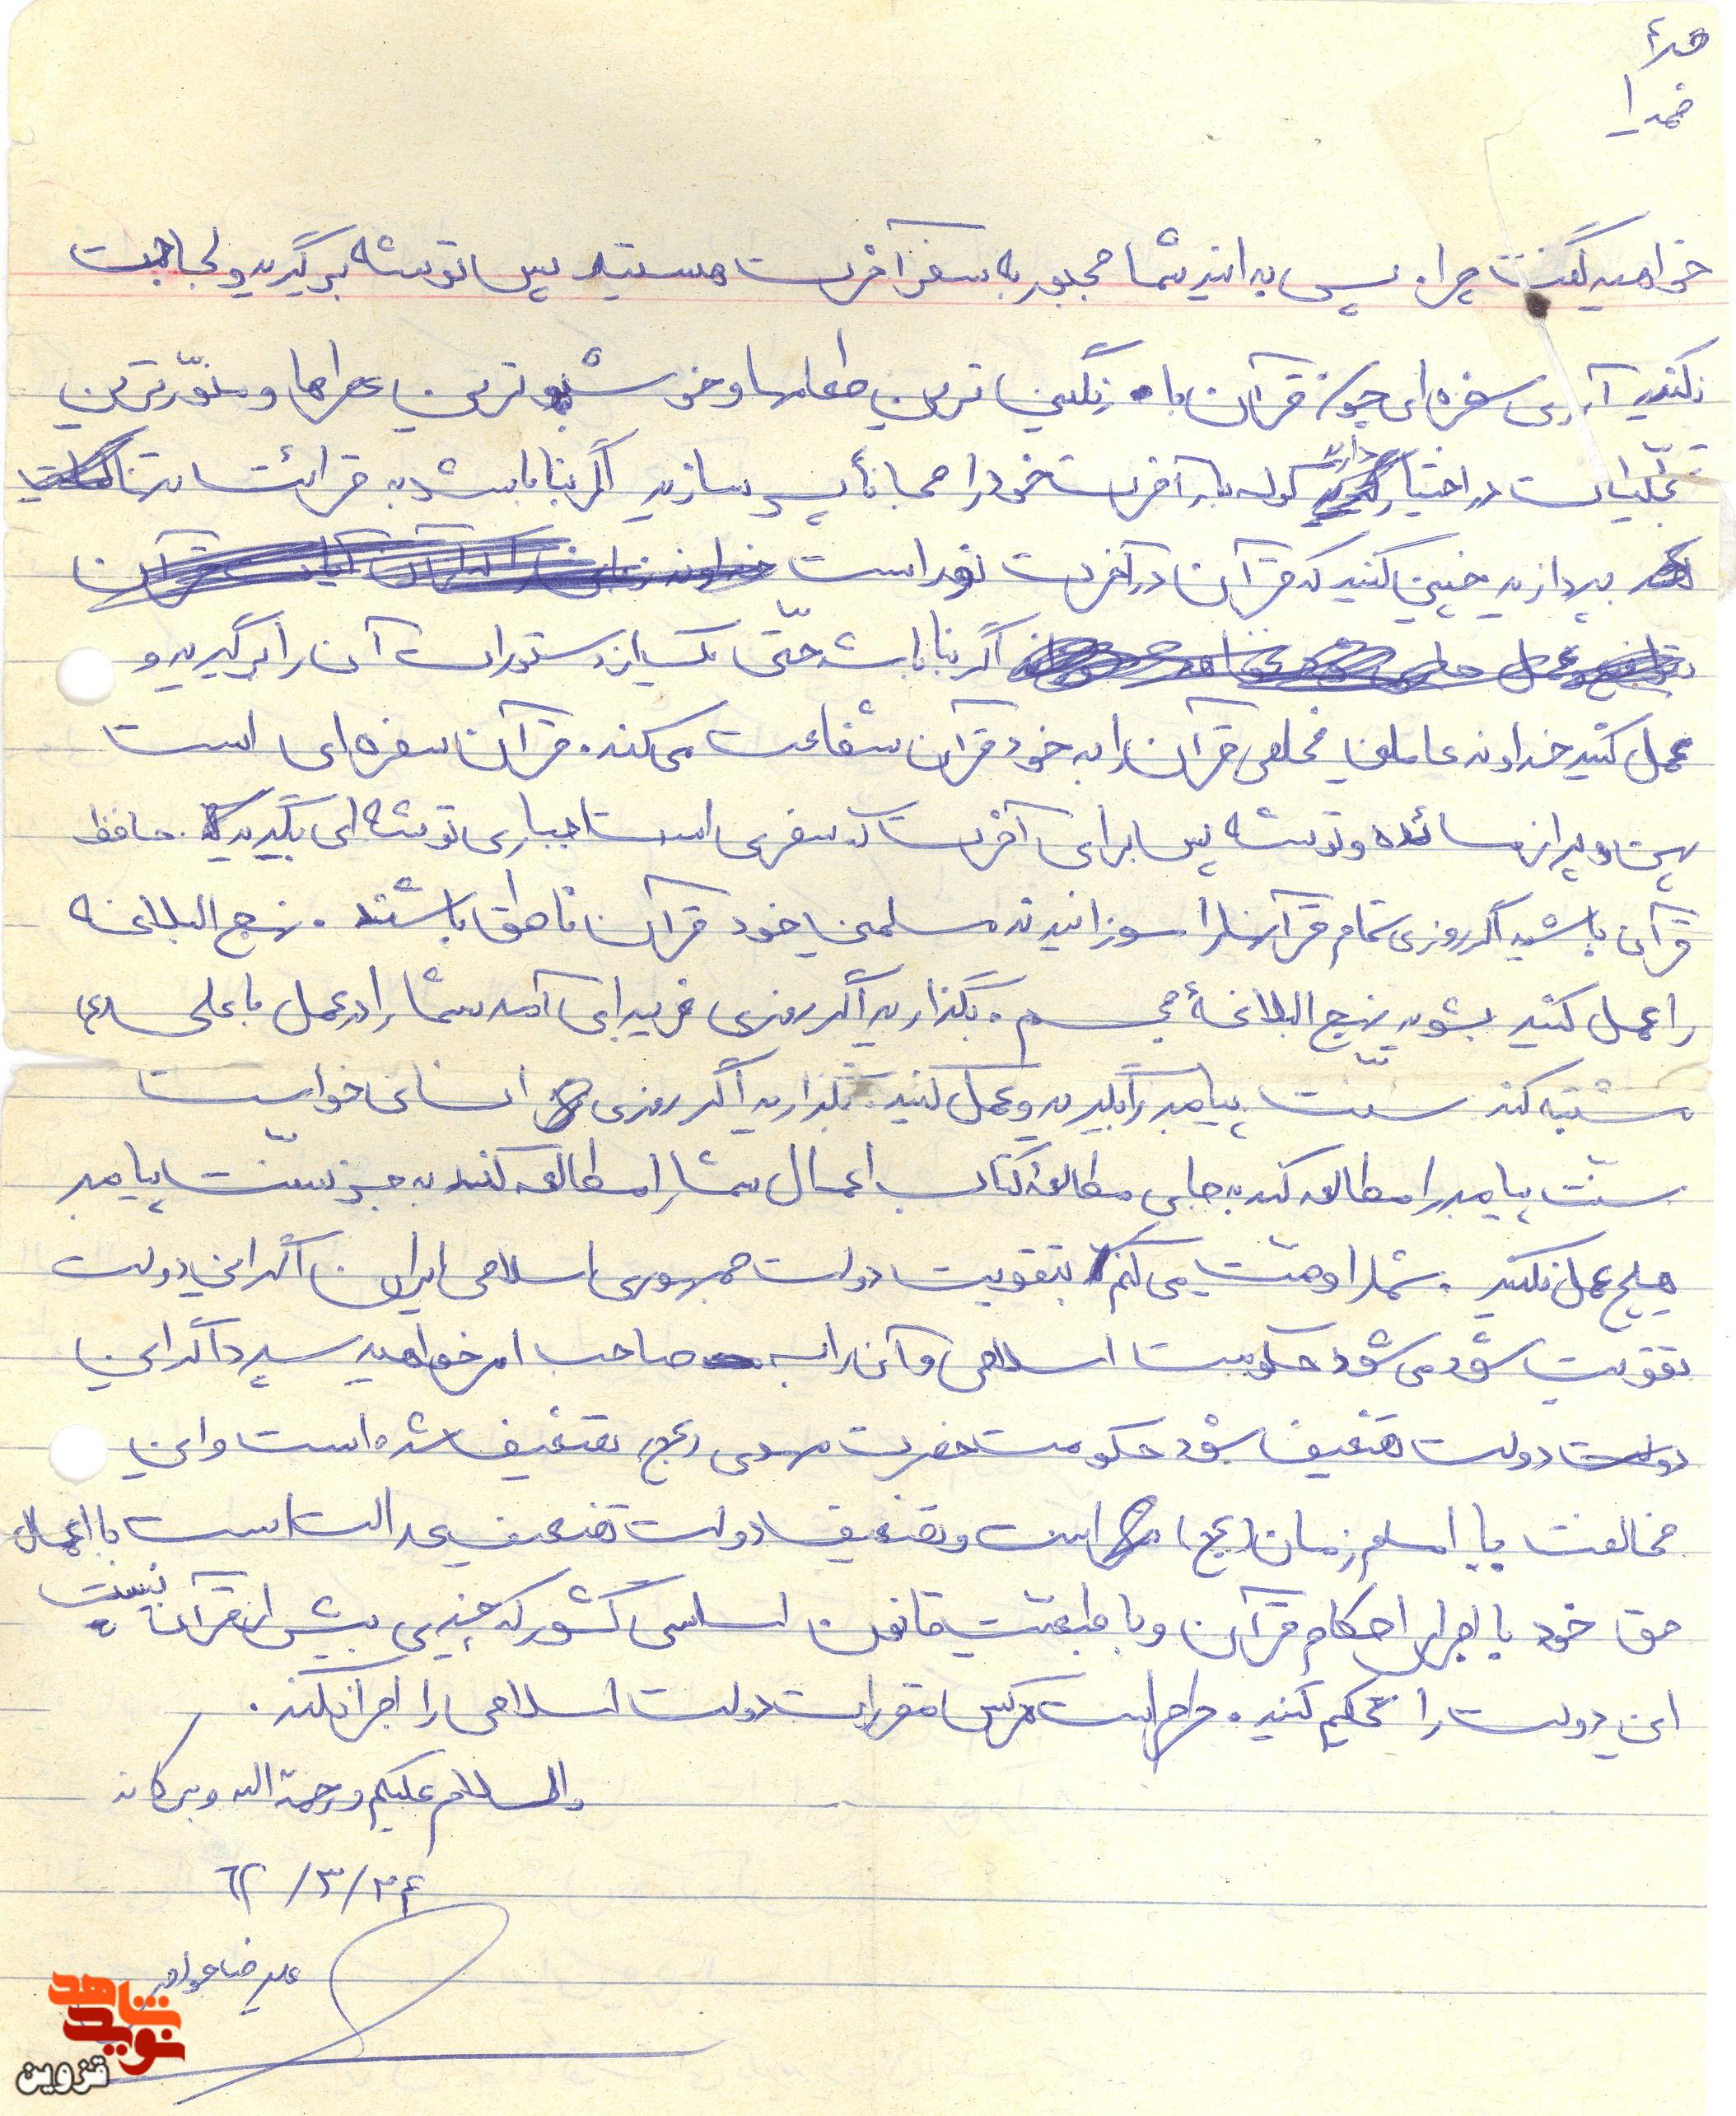 خواهید گفت چرا. پس بدانید شما مجبور به سفر آخرت هستید پس توشه برگیرید و لجاجت
نکنید آری سفره‌ای چون قرآن با رنگین ترین طعامها و خوشبو ترین عطرها و منوّرترین
تجلّیات در اختیار دارید کوله بار آخرت خود را مجاناً پر سازید اگر بنا باشد به قرائت تنها
بپردازید چنین کنید که قرآن در آخرت نور است
اگر بنا باشد حتّی یکی از دستورات آن را برگیرید و
عمل کنید خداوند عاملین مخلص قرآن را به خود قرآن شفاعت می‌کند. قرآن سفره‌ای است
پهن و پر از مائده و توشه پس برای آخرت که سفری است اجباری توشه‌ای بگیرید. حافظ
قرآن باشید اگر روزی تمام قرآنها را سوزانیدند مسلمین خود قرآن ناطق باشند. نهج البلاغه
را عمل کنید بشوید نهج البلاغهٔ مجسم. بگذارید اگر روزی غریبه‌ای آمد شما را در عمل با علی (ع)
مشتبه کند سنّت پیامبر را بگیرید و عمل کنید. بگذارید اگر روزی انسانی خواست
سنّت پیامبر را مطالعه کند به جای مطالعهٔ کتاب اعمال شما را مطالعه کند به جز سنّت پیامبر
هیچ عمل نکنید. شما را وصیّت می‌کنم بتقویت دولت جمهوری اسلامی ایران اگر این دولت
تقویت شود می‌شود حکومت اسلامی و آن را به صاحب امر خواهید سپرد اگر این
دولت ضعیف شود حکومت حضرت مهدی (عج) تضعیف شده است و این
مخالفت با امام زمان (عج) است و تضعیف دولت تضعیف عدالت است با اعمال
حق خود با اجرای احکام قرآن و با طبعیّت قانون اساسی کشور که چیزی بیش از قرآن نیست
این دولت را تحکیم کنید. حرام است هرکس مقررات دولت اسلامی را اجرا نکند.
والسلام علیکم و رحمة الله و برکاته
۶۲/۳/۲۴
علیرضا
شاهد
نوید
قزوین